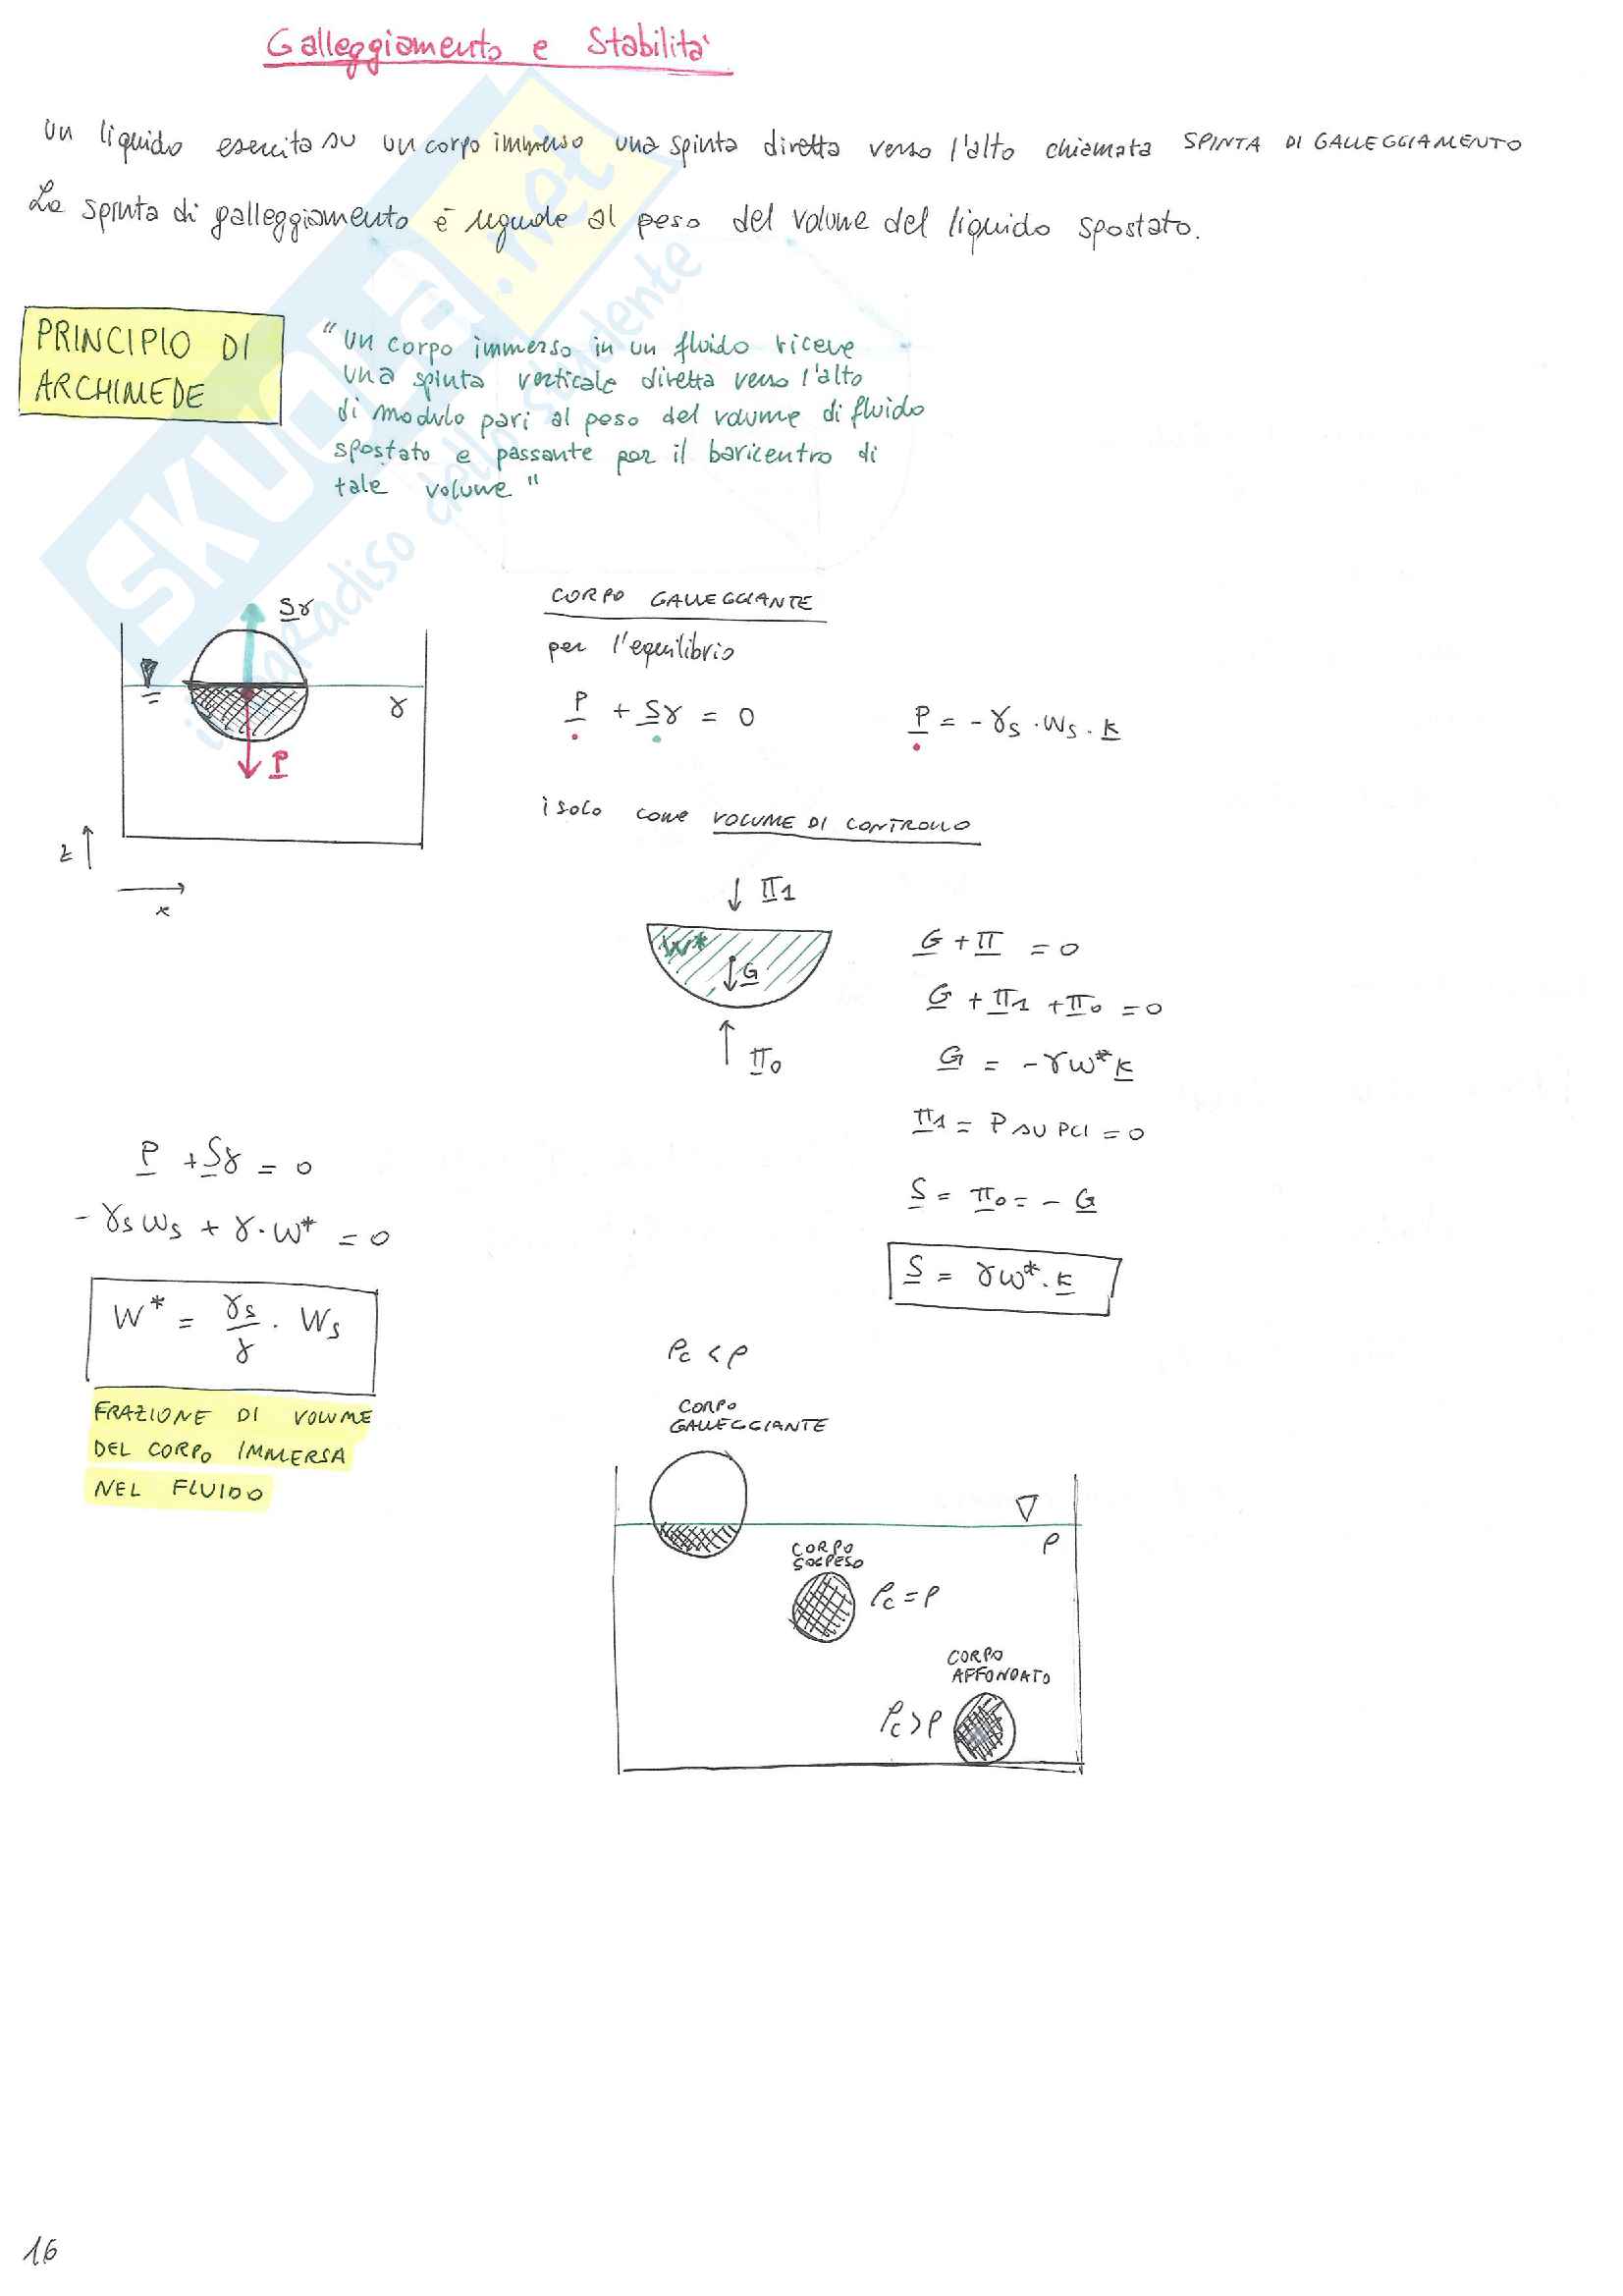 Galleggiamento e Stabilità
Un liquido esercita su un corpo immerso una spinta diretta verso l'alto chiamata SPINTA DI GALLEGGIAMENTO
La spinta di galleggiamento è uguale al peso del volume del liquido spostato.
PRINCIPIO DI
ARCHIMEDE
"Un corpo immerso in un fluido riceve
una spinta verticale diretta verso l'alto
di modulo pari al peso del volume di fluido
spostato e passante per il baricentro di
tale volume"
SKUOLA.net
il paradiso dello studente
Sγ
γ
P
z
x
CORPO GALLEGGIANTE
per l'equilibrio
P + Sγ = 0
P = - γs · Ws · k
isolo come VOLUME DI CONTROLLO
Π1
W*
G
Π0
G + Π = 0
G + Π1 + Π0 = 0
G = - γW* k
Π1 = P su PCI = 0
S = Π0 = - G
S = γW* · k
P + Sγ = 0
- γs Ws + γ · W* = 0
W* = γs/γ · Ws
FRAZIONE DI VOLUME
DEL CORPO IMMERSA
NEL FLUIDO
ρc < ρ
CORPO
GALLEGGIANTE
ρ
CORPO
SOSPESO
ρc = ρ
CORPO
AFFONDATO
ρc > ρ
16